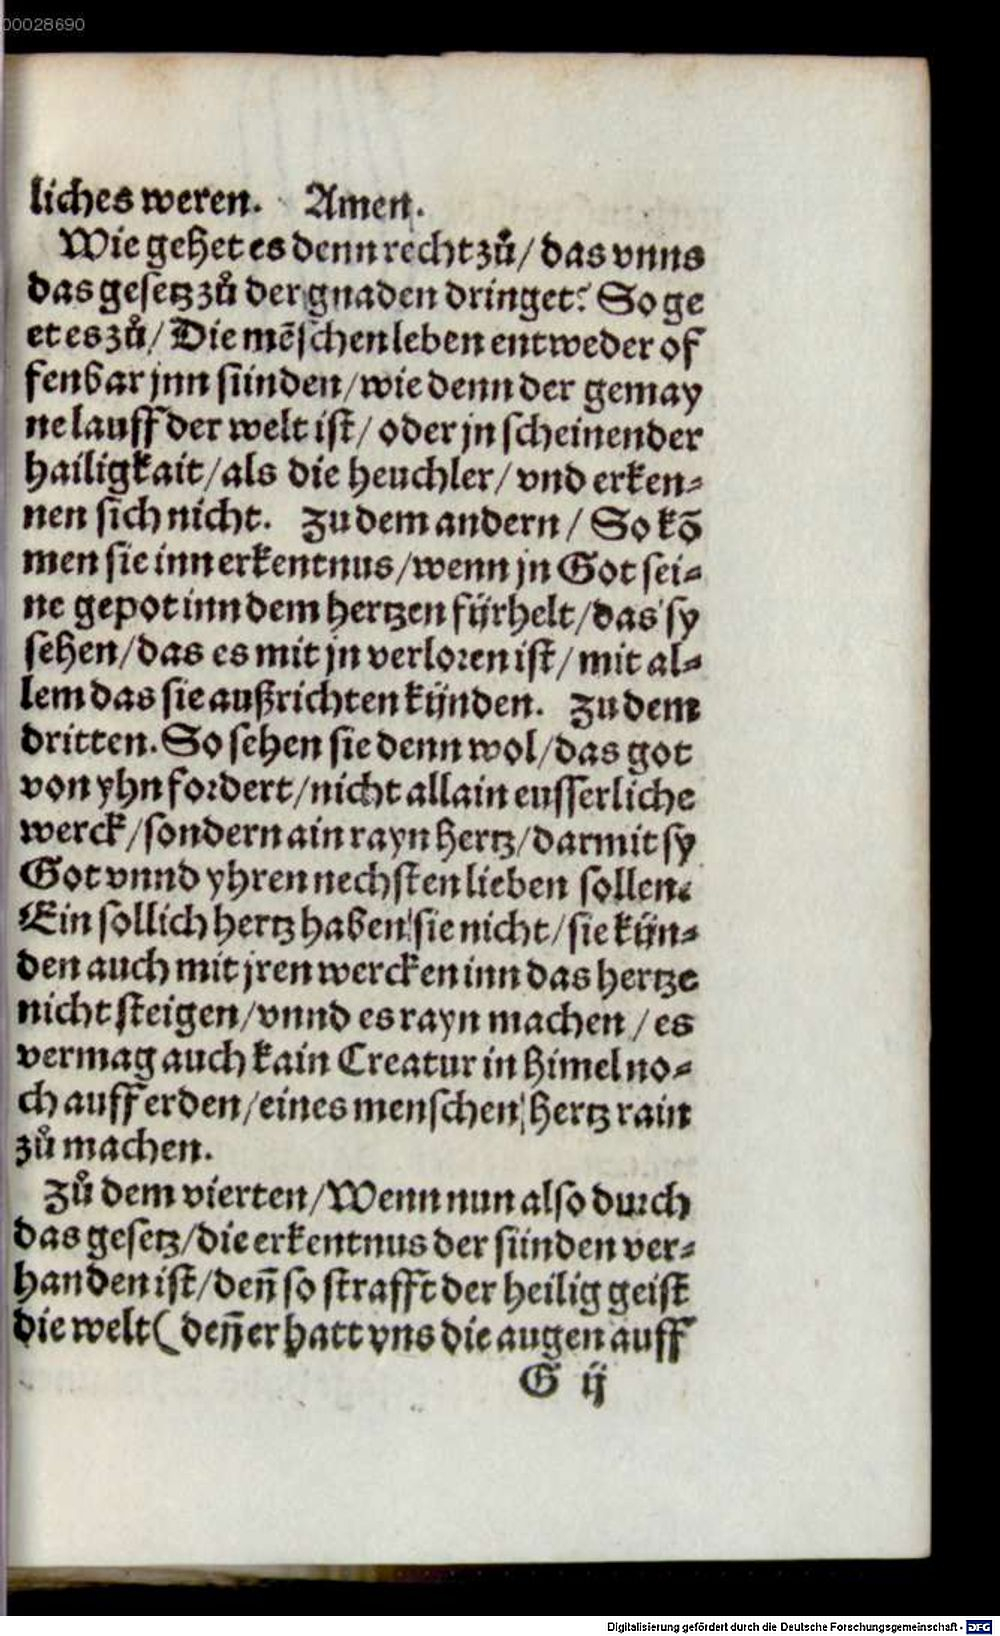 00028690
liches weren. Amen.
Wie gehet es denn recht zů/ das vnns
das gesetz zů der gnaden dringet? So ge
et es zů/ Die mẽschen leben entweder of
fenbar jnn sünden/ wie denn der gemay
ne lauff der welt ist/ oder jn scheinender
hailigkait/ als die heuchler/ vnd erken⸗
nen sich nicht. Zu dem andern/ So kõ
men sie inn erkentnus/ wenn jn Got sei⸗
ne gepot inn dem hertzen fürhelt/ das sy
sehen/ das es mit jn verloren ist/ mit al⸗
lem das sie außrichten künden. Zu dem
dritten. So sehen sie denn wol/ das got
von yhn fordert/ nicht allain eusserliche
werck/ sondern ain rayn hertz/ darmit sy
Got vnnd yhren nechsten lieben sollen.
Ein sollich hertz haben sie nicht/ sie kün⸗
den auch mit jren wercken inn das hertze
nicht steigen/ vnnd es rayn machen/ es
vermag auch kain Creatur in himel no⸗
ch auff erden/ eines menschen hertz rain
zů machen.
Zů dem vierten/ Wenn nun also durch
das gesetz/ die erkentnus der sünden ver⸗
handen ist/ deñ so strafft der heilig geist
die welt (deñ er hatt vns die augen auff
G ij
Digitalisierung gefördert durch die Deutsche Forschungsgemeinschaft - DFG